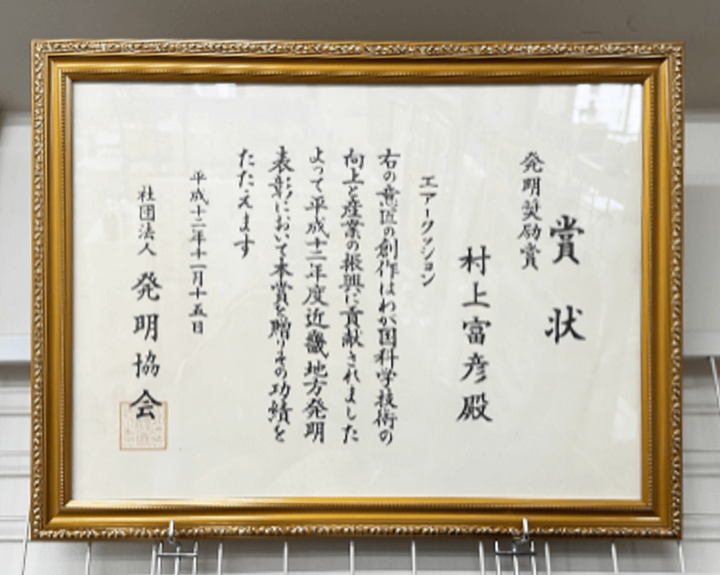 賞状
発明奨励賞
村上富彦殿
エアークッション
右の意匠の創作はわが国科学技術の
向上と産業の振興に貢献されました
よって平成十二年度近畿地方発明
表彰において本賞を贈りその功績を
たたえます
平成十二年十一月十五日
社団法人 発明協会